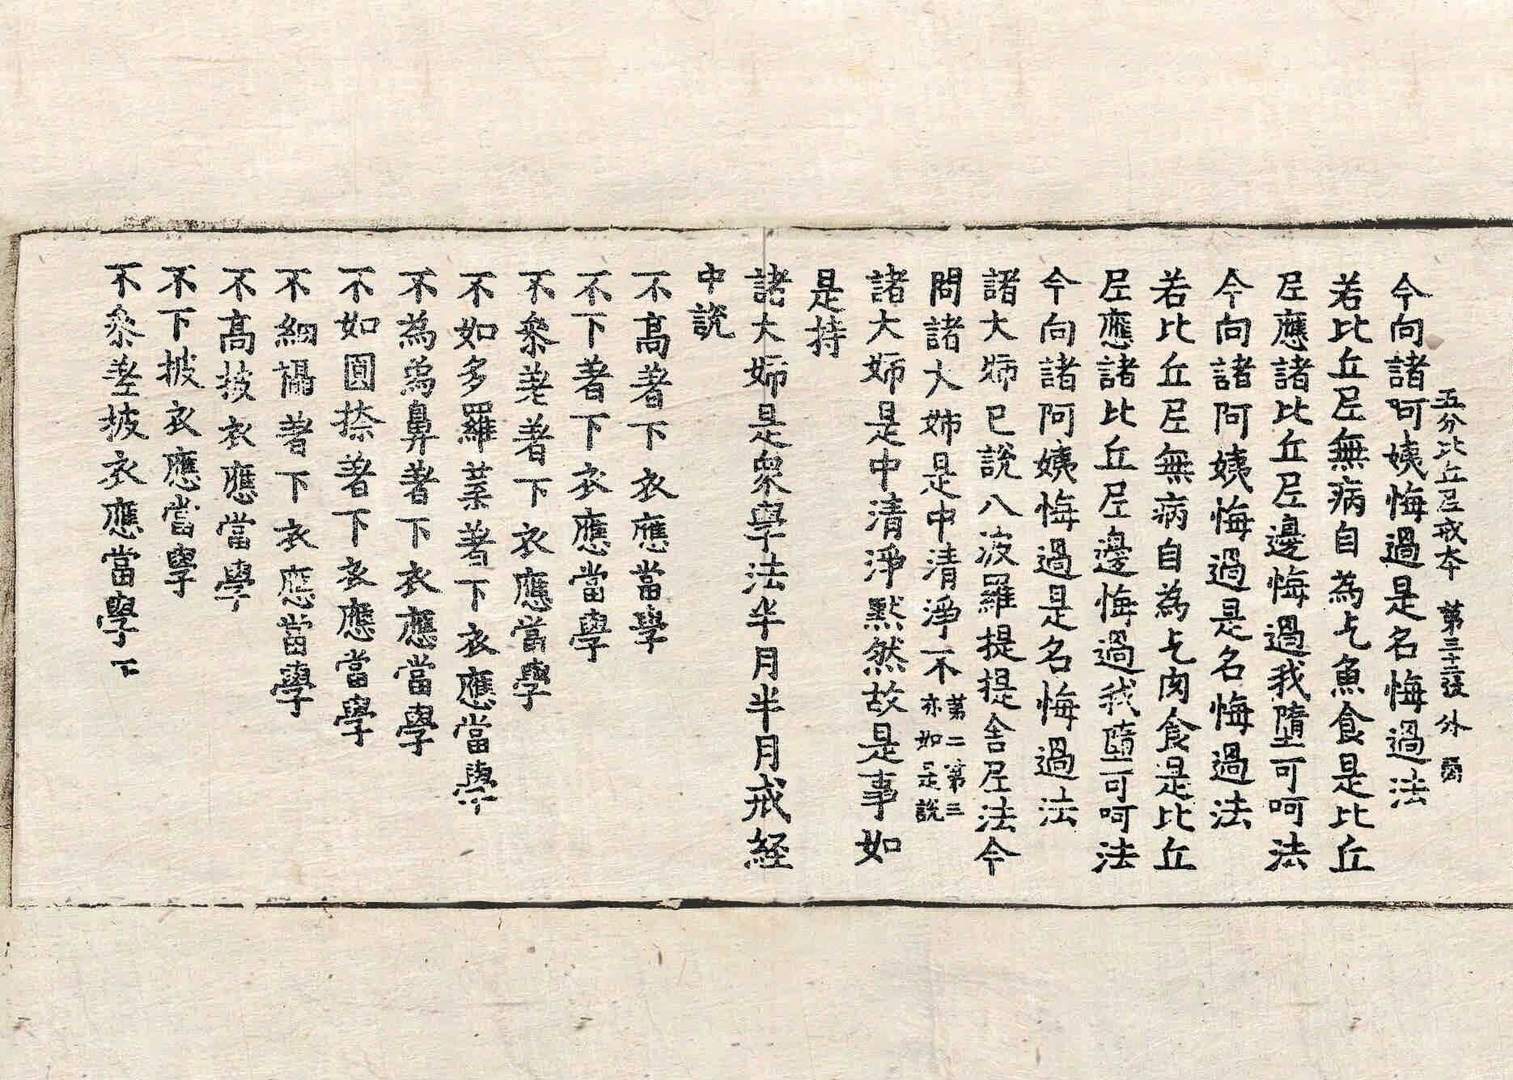 今向諸可姨悔過是名悔過法
五分比丘尼戒本 第三十二張 外
若比丘尼無病自為乞魚食是比丘
尼應諸比丘尼邊悔過我墮可呵法
今向諸阿姨悔過是名悔過法
若比丘尼無病自為乞肉食是比丘
尼應諸比丘尼邊悔過我墮可呵法
今向諸阿姨悔過是名悔過法
諸大姉已說八波羅提提舍尼法今
問諸大姉是中清淨不 第二第三亦如是說
諸大姉是中清淨默然故是事如
是持
諸大姉是衆學法半月半月戒経
中説
不高著下衣應當學
不下著下衣應當學
不叅差著下衣應當學
不如多羅葉著下衣應當學
不為鼻著下衣應當學
不如圓捺著下衣應當學
不細攝著下衣應當學
不高披衣應當學
不下披衣應當學
不叅差披衣應當學 下